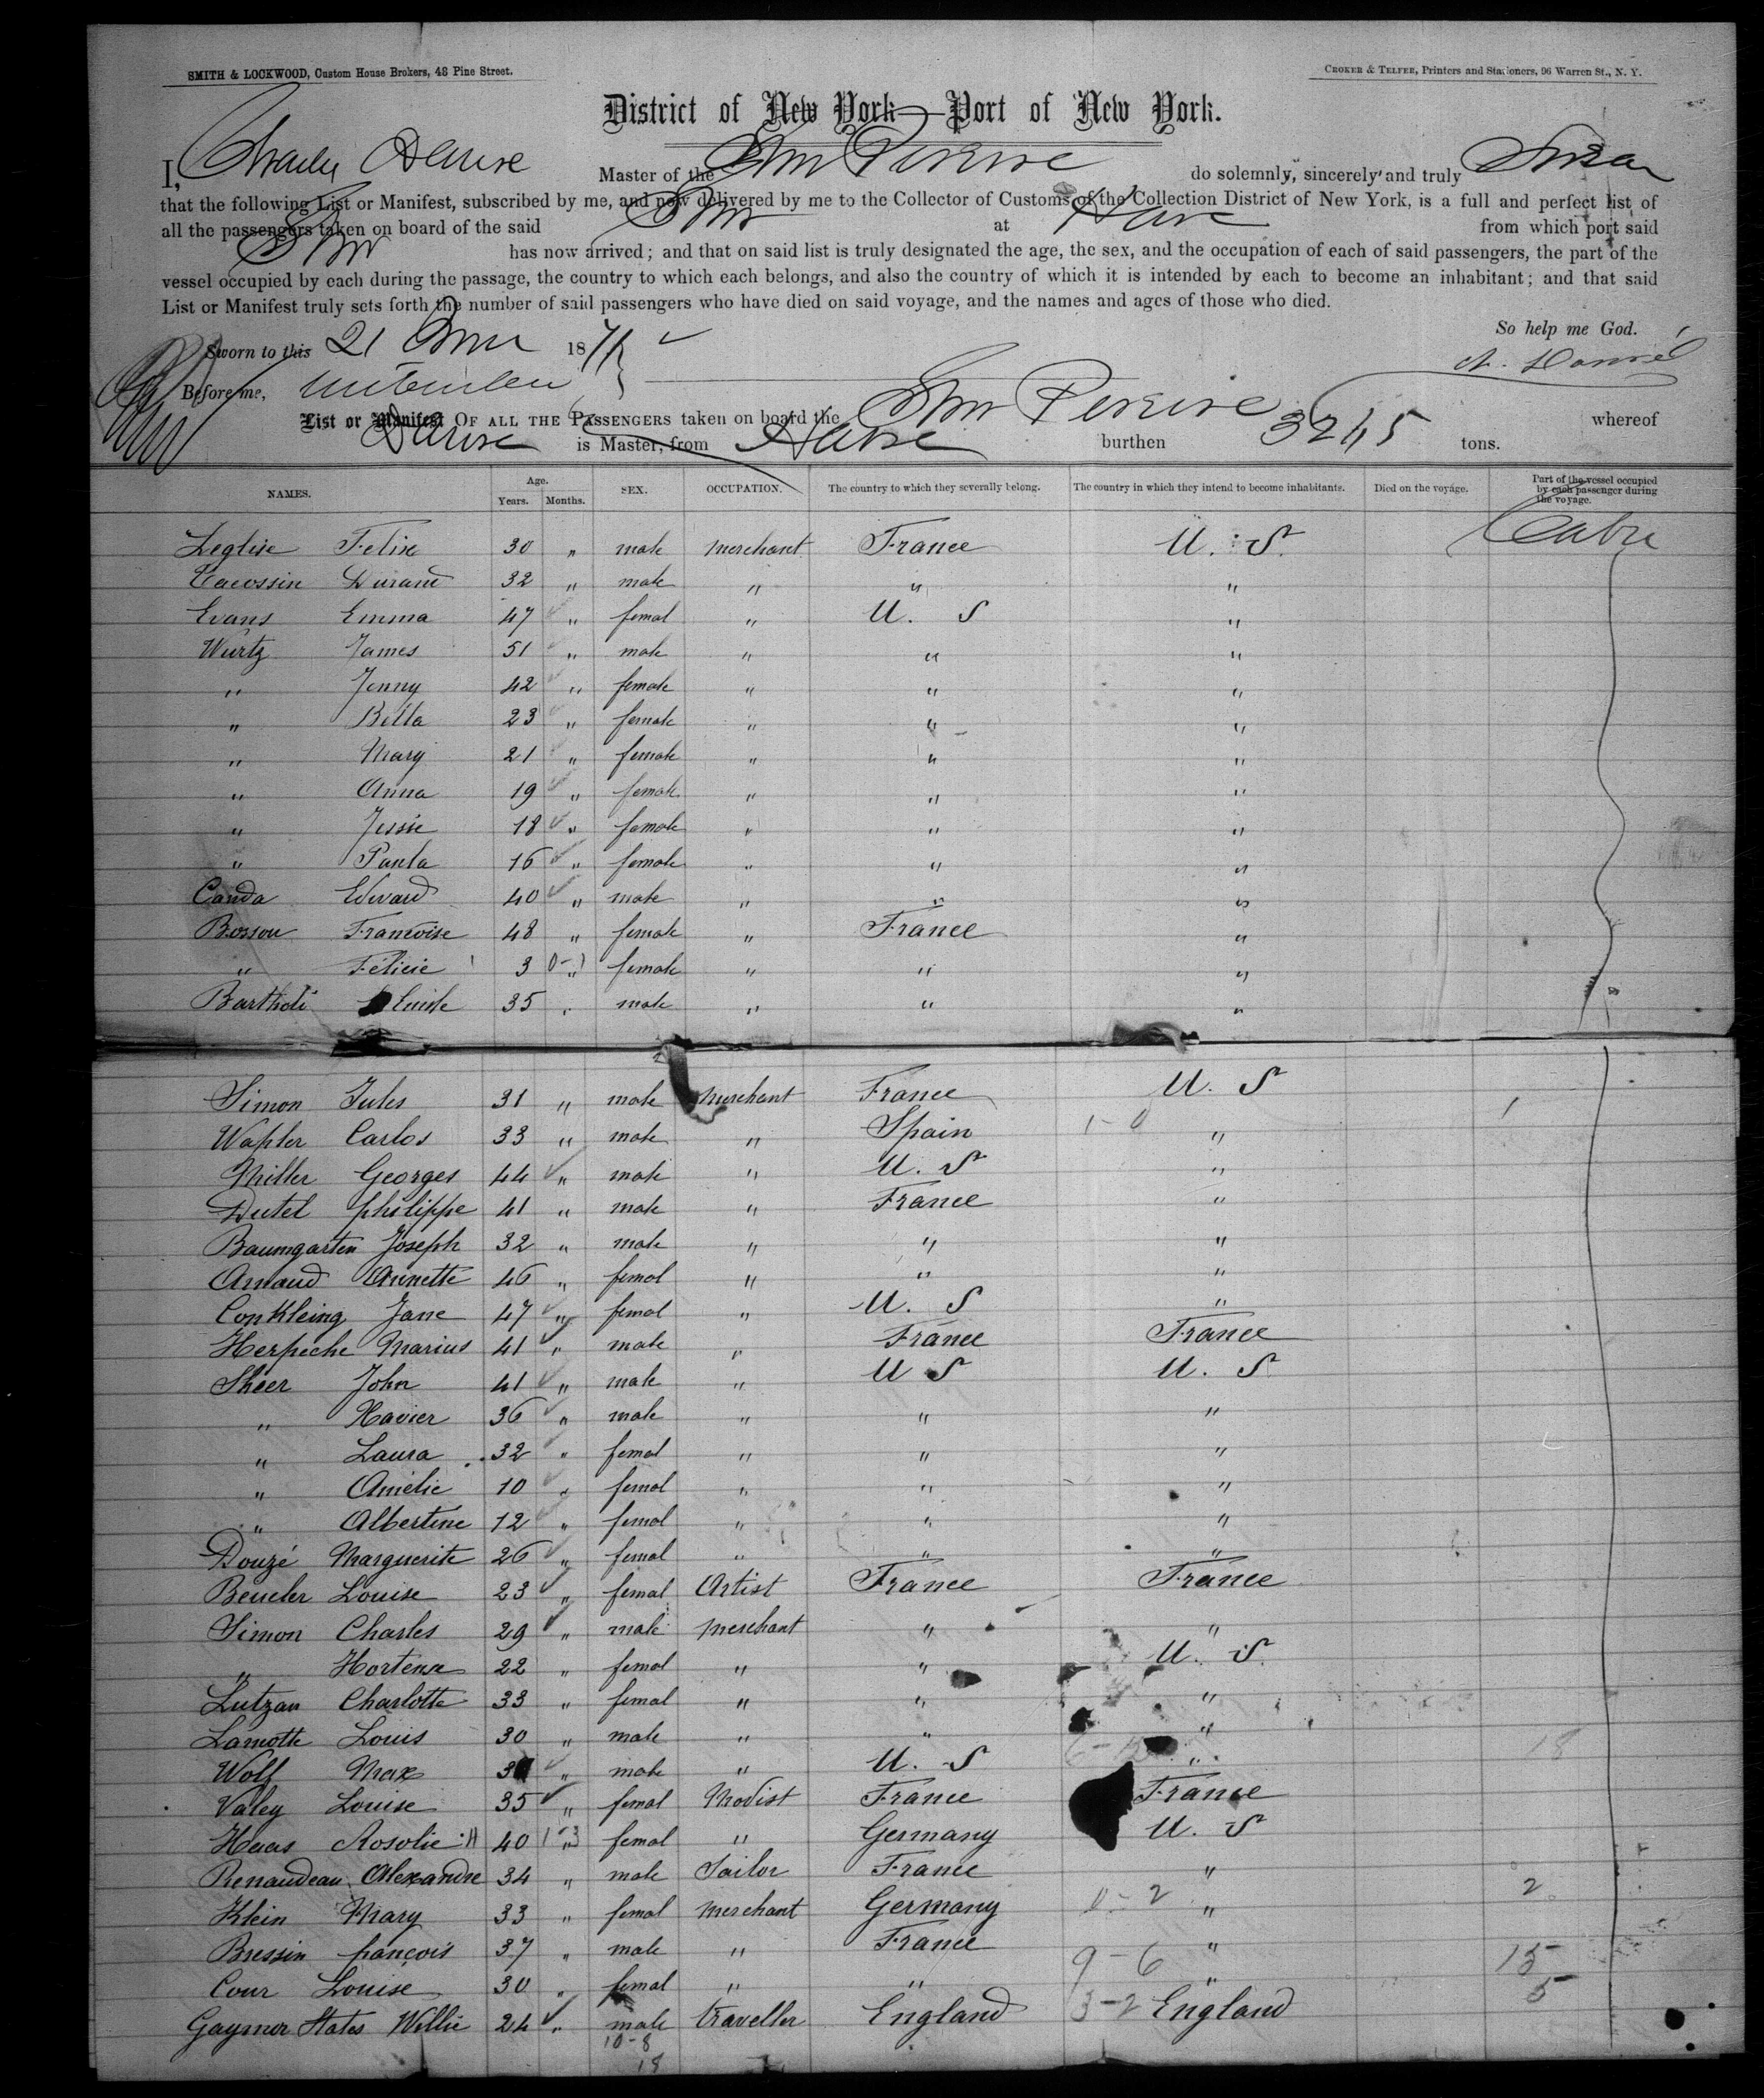 SMITH & LOCKWOOD, Custom House Brokers, 48 Pine Street. CROKER & TELFER, Printers and Stationers, 96 Warren St., N. Y.
District of New York—Port of New York.
I, Master of the Pereire do solemnly, sincerely and truly
that the following List or Manifest, subscribed by me, and now delivered by me to the Collector of Customs of the Collection District of New York, is a full and perfect list of
all the passengers taken on board of the said Stmr at Havre from which port said
Stmr has now arrived; and that on said list is truly designated the age, the sex, and the occupation of each of said passengers, the part of the
vessel occupied by each during the passage, the country to which each belongs, and also the country of which it is intended by each to become an inhabitant; and that said
List or Manifest truly sets forth the number of said passengers who have died on said voyage, and the names and ages of those who died.
So help me God.
Sworn to this 21 June 1871
Before me,
List or Manifest OF ALL THE PASSENGERS taken on board the Stmr Pereire whereof
is Master, from Havre burthen 3245 tons.
NAMES. Age. Years. Months. SEX. OCCUPATION. The country to which they severally belong. The country in which they intend to become inhabitants. Died on the voyage. Part of the vessel occupied by each passenger during the voyage.
Leglise Felix 30 " male merchant France U. S.
Durand 32 " male " " "
Evans Emma 47 " femal " U. S "
Wurtz James 51 " male " " "
" Jenny 42 " female " " "
" Bella 23 " female " " "
" Mary 21 " female " " "
" Anna 19 " female " " "
" Jessie 18 " female " " "
" Paula 16 " female " " "
Canda Edward 40 " male " " "
Bossou Francoise 48 " female " France "
" Félicie 3 " female " " "
Bartholi 35 " male " " "
Simon Jules 31 " male merchant France U. S
Wapler Carlos 33 " male " Spain 1-0 "
Miller Georges 44 " male " U. S "
Dutel philippe 41 " male " France "
Baumgarten Joseph 32 " male " " "
Arnaud Annette 46 " femal " " "
Conkleing Jane 47 " femal " U. S "
Herpeche Marius 41 " male " France France
Sheer John 41 " male " U S U. S
" Xavier 36 " male " " "
" Laura 32 " femal " " "
" Amélie 10 " femal " " "
" Albertine 12 " femal " " "
Douzé Marguerite 26 " femal " " "
Beucler Louise 23 " femal Artist France France
Simon Charles 29 " male merchant " "
" Hortense 22 " femal " " U. S.
Lutzau Charlotte 33 " femal " " "
Lamotte Louis 30 " male " " "
Wolf Max " male " U. S " 18
Valey Louise 35 " femal Modist France France
Haas Rosolie 40 " femal " Germany U. S
Renaudeau Alexandre 34 " male Tailor France "
Klein Mary 33 " femal merchant Germany 0-2 " 2
Bressin françois 37 " male " France "
Cour Louise 30 " femal " " 9-6 " 15
Gaymor States Willie 24 " male traveller England 3-2 England 5
10-8
18